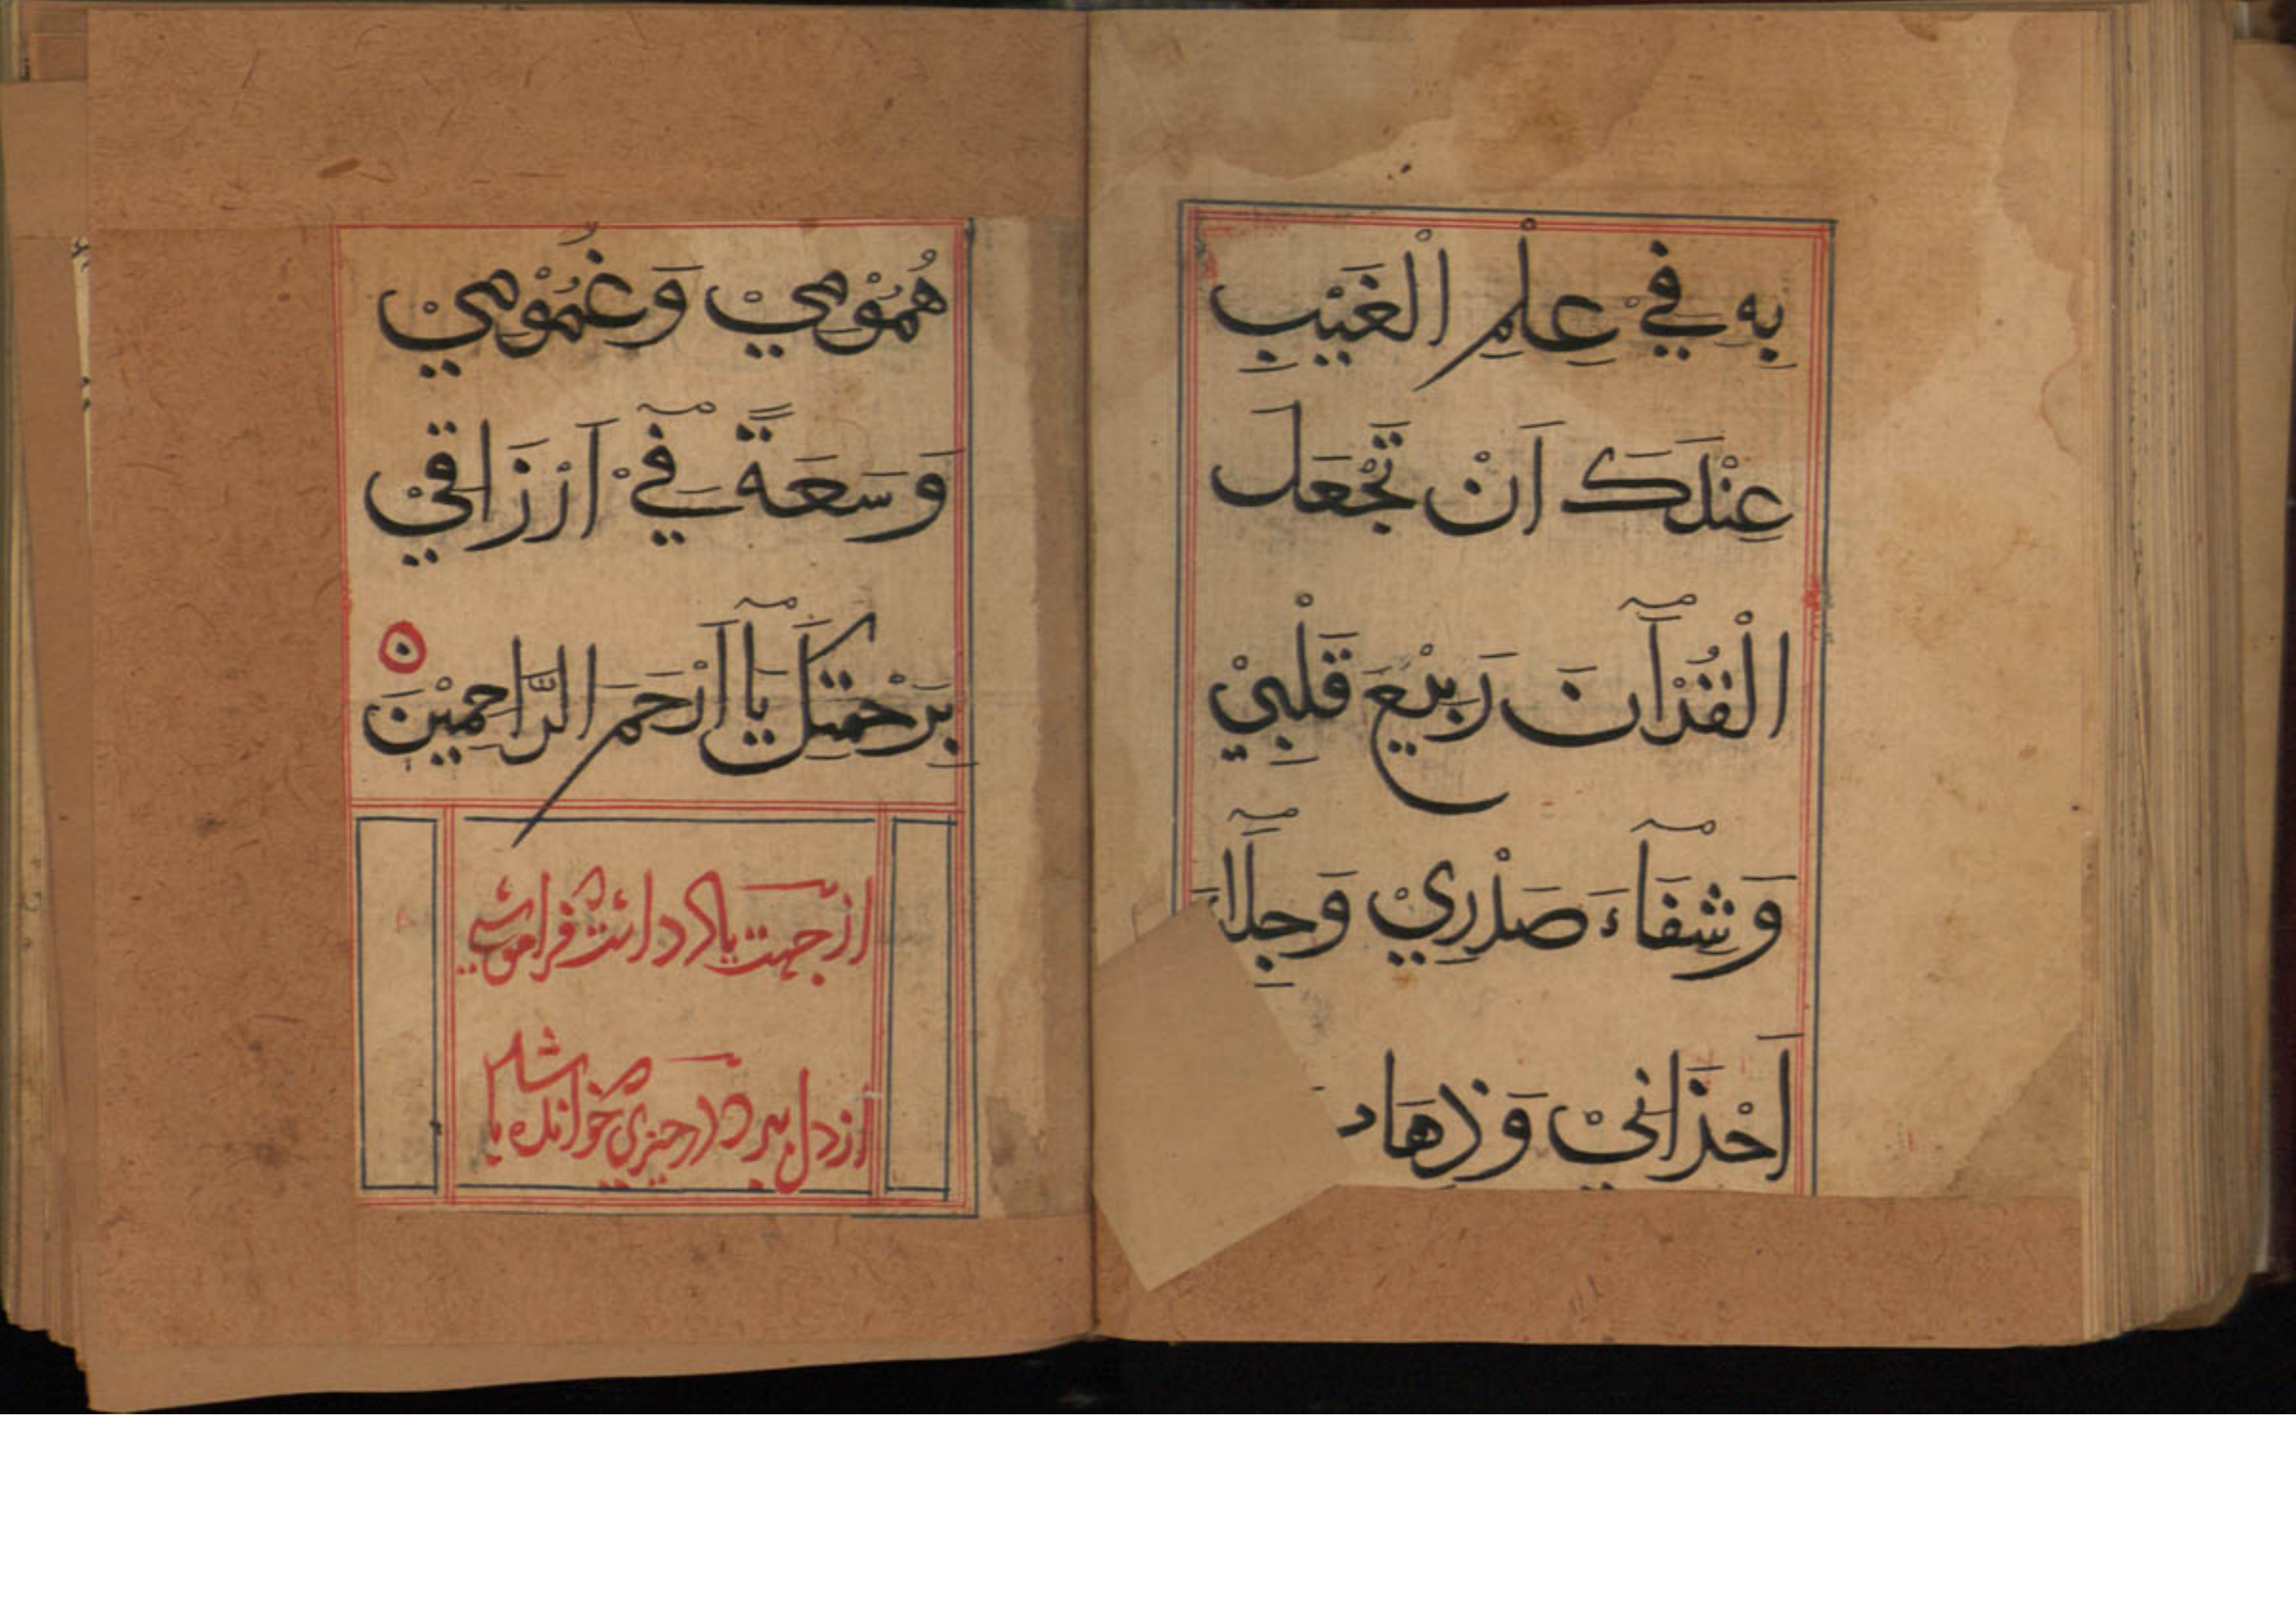 بِهِ فِيْ عِلْمِ الْغَيْبِ
عِنْدَكَ اَنْ تَجْعَلَ
الْقُرْآنَ رَبِيْعَ قَلْبِيْ
وَشِفَآءَ صَدْرِيْ وَجِلَآءَ
اَحْزَانِيْ وَذِهَا
هُمُوْمِيْ وَغُمُوْمِيْ
وَسَعَةً فِيْ اَرْزَاقِيْ
بِرَحْمَتِكَ يَا اَرْحَمَ الرَّاحِمِيْنَ
از جهت ياد داشت فراموشي
از دل ببرد هر چيزي خوانده باشد